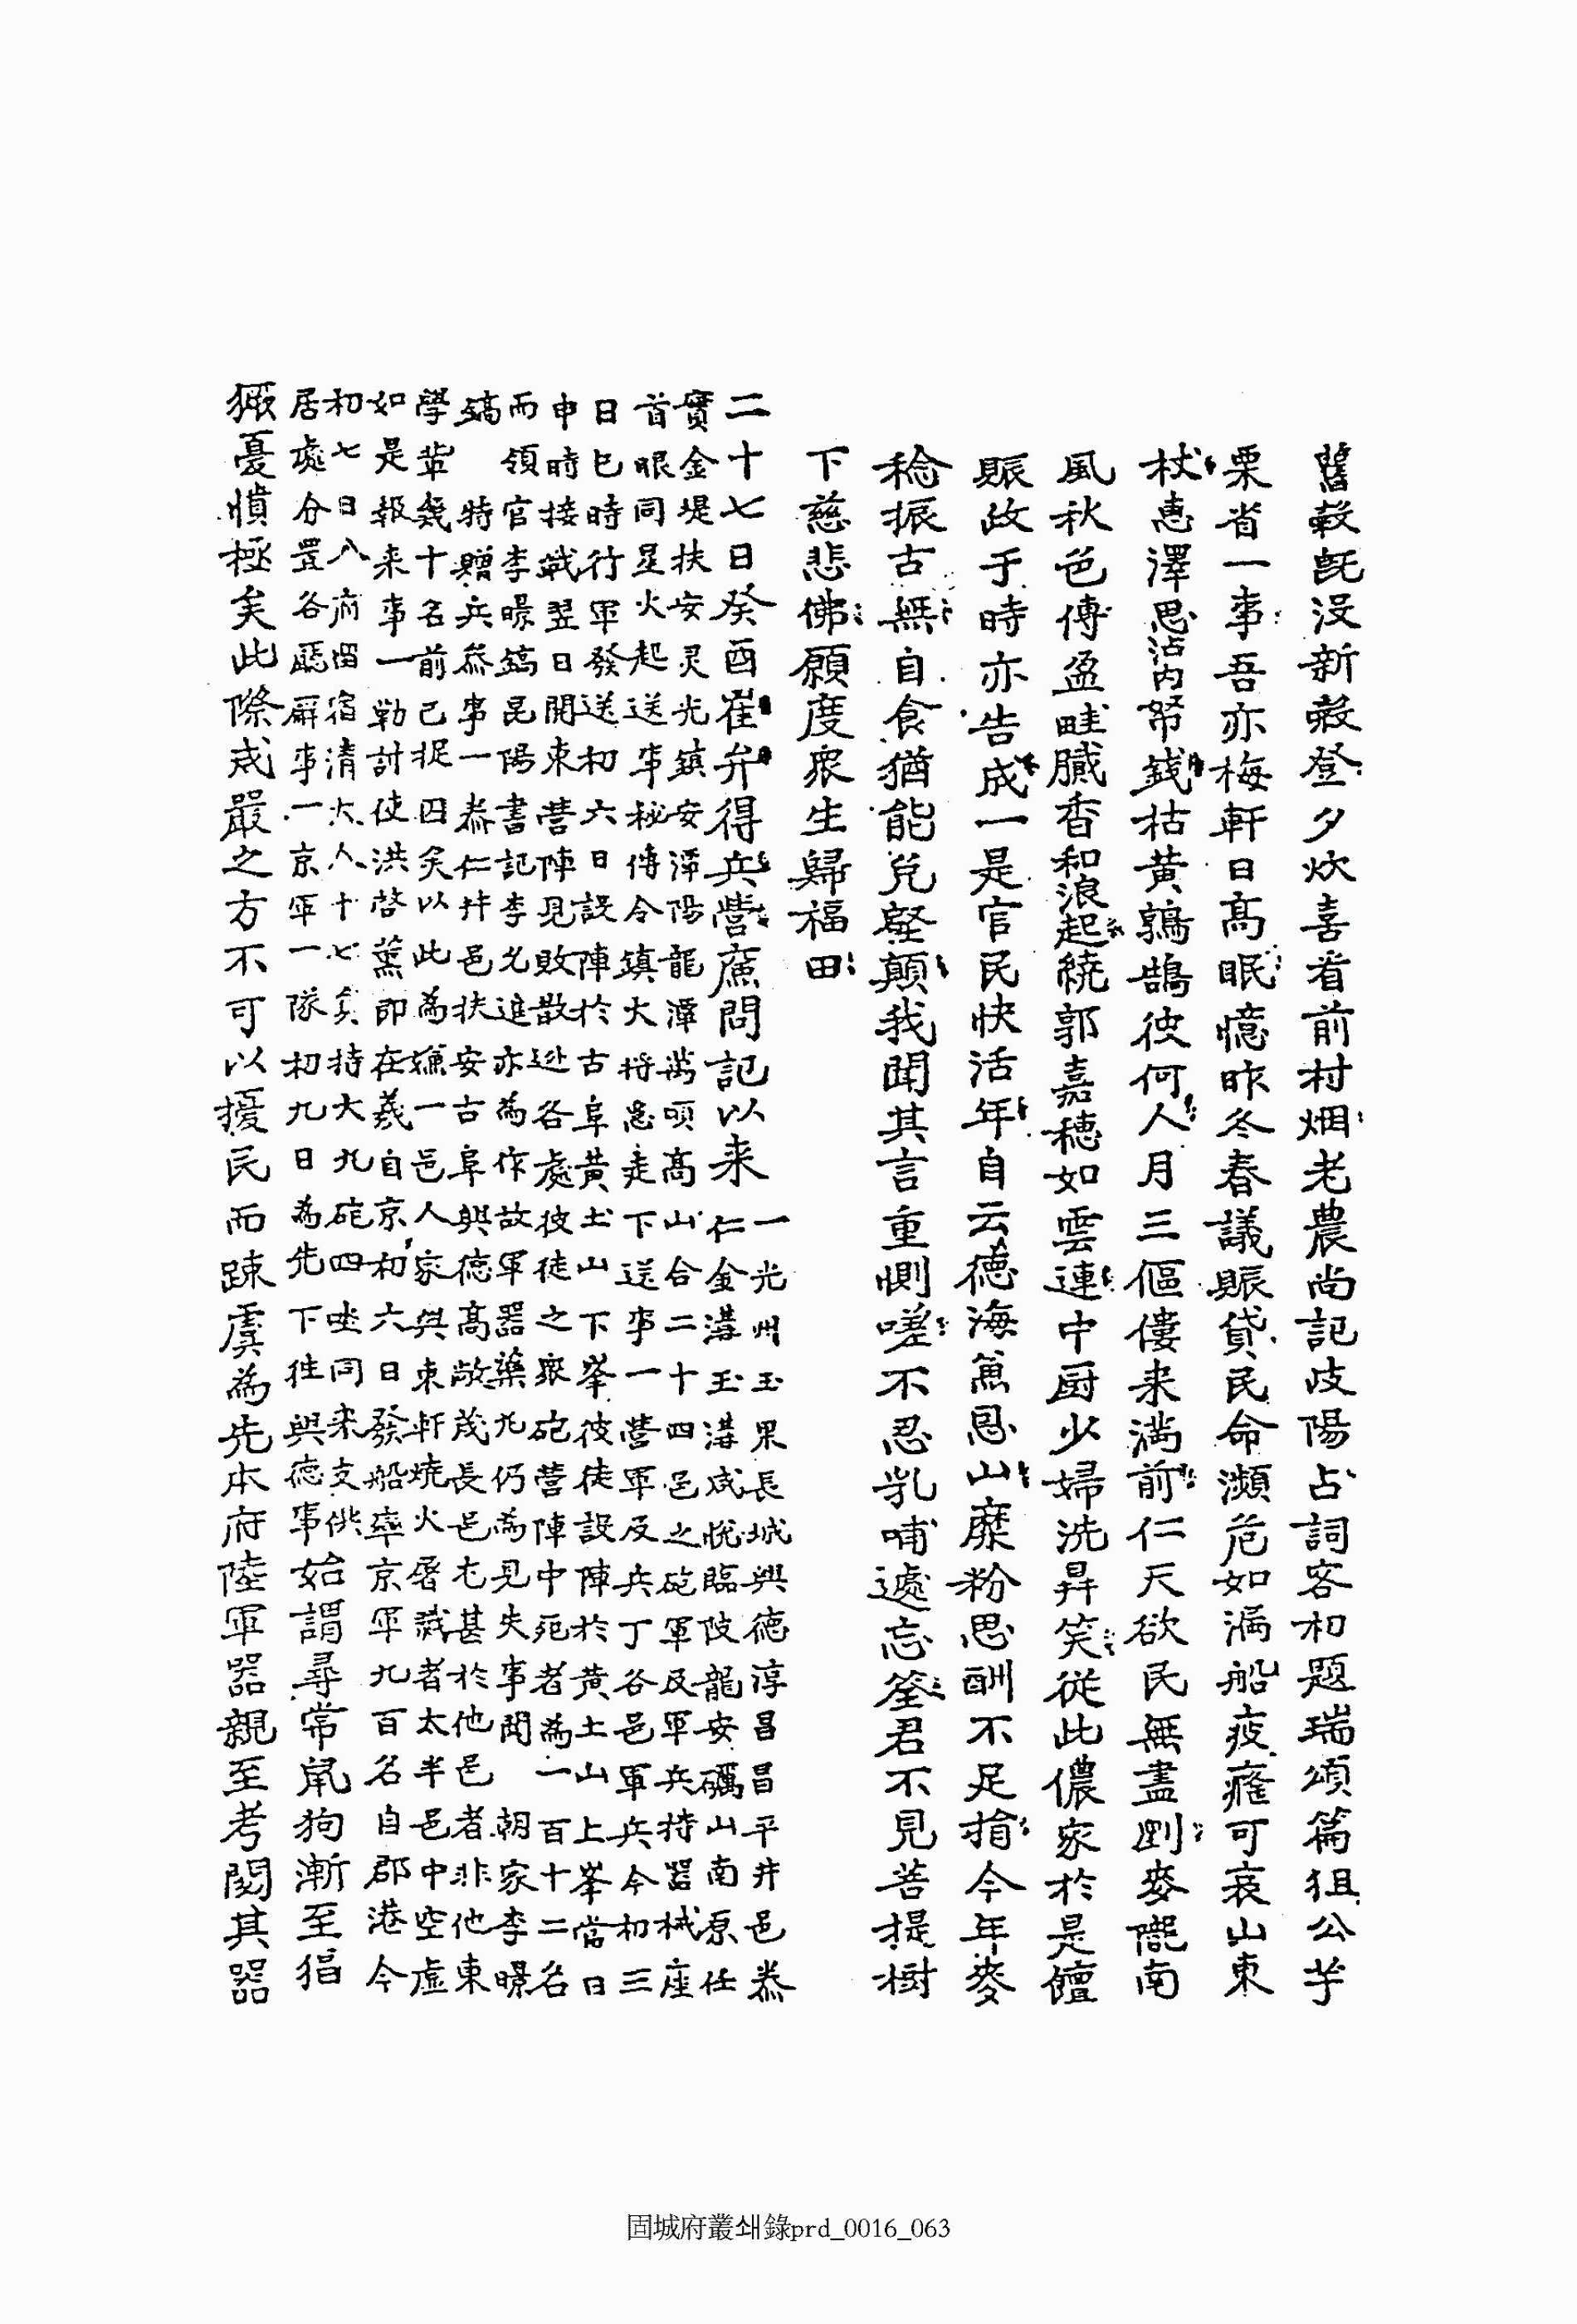 舊穀旣沒新穀登夕炊喜看前村烟老農尚記歧陽占詞客和題瑞頌篇狙公芧
栗省一事吾亦梅軒日高眠憶昨冬春議賑貸民命瀕危如漏船疲癃可哀山東
杖惠澤思沾內帑錢枯黃鵠彼何人月三傴僂來滿前仁天欲民無盡劉麥隴南
風秋色傳盈畦膩香和浪起繞郭嘉穗如雲連中厨少婦洗鼎笑從此儂家於是饘
賑政于時亦告成一是官民快活年自云德海萬恩山糜粉思酬不足損今年麥
稔振古無自食猶能免壑顚我聞其言重惻嗟不忍乳哺遽忘筌君不見菩提樹
下慈悲佛願度衆生歸福田
二十七日癸酉崔弁得兵營廉問記以來
一光州玉果長城興德淳昌昌平井邑泰
仁金溝玉溝咸悅臨陂龍安礪山南原任
實金堤扶安灵光鎭安潭陽龍潭萬頃高山合二十四邑之砲軍及軍兵持器械座
首眼同星火起送事秘傳令鎭大將急走下送事一營軍及兵丁各邑軍兵今初三
日巳時行軍發送初六日設陣於古阜黃土山下峯彼徒設陣於黃土山上峯當日
申時接戰翌日開東營陣見敗散逃各處彼徒之衆砲營陣中死者爲一百十二名
而領官李暻鎬昆陽書記李允進亦爲作故軍器藥丸仍爲見失事聞 朝家李暻
鎬 特贈兵叅事一泰仁井邑扶安古阜興德高敞茂長邑尤甚於他邑者非他東
學輩幾十名前已捉囚矣以此爲嫌一邑人家與東軒燒火屠戮者太半邑中空虛
如是報來事一勦討使洪啓薰卽在義自京初六日發船率京軍九百名自郡港今
初七日八府留宿淸大人十七員持大九砲四坐同來支供
居處分置各廳廨事一京軍一隊初九日爲先下往興德事始謂尋常鼠狗漸至猖
獗憂憤極矣此際戒嚴之方不可以擾民而踈虞爲先本府陸軍器親至考閱其器
固城府叢쇄錄prd_0016_063